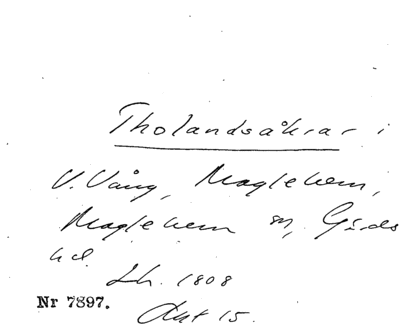 Tholandsåkrar i
V. Vång, Maglehem,
Maglehem sn, Gärds
hd.
Lh. 1808
Nr 7897.
Akt 15.